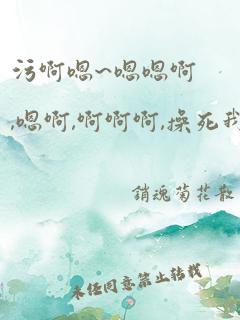 污啊嗯~嗯嗯啊
,嗯啊,啊啊啊,操死我
銷魂菊花散
未经同意禁止转载